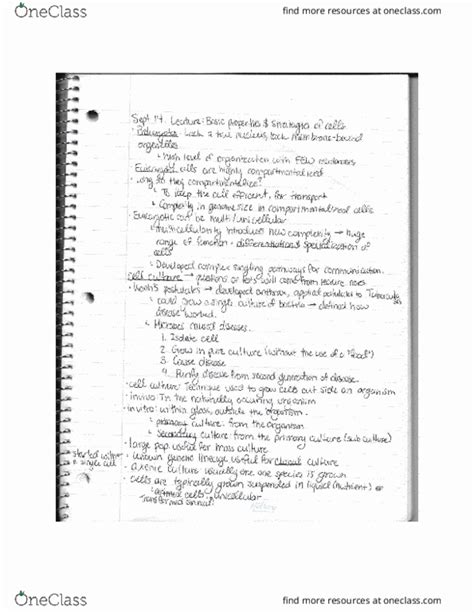 OneClass
find more resources at oneclass.com
Sept 17 Lecture: Basic properties & strategies of cells
• Prokaryotes - Lack a true nucleus, lack membrane-bound
organelles
↳ High level of organization with FEW
• Eukaryotic cells are highly compartmentalized
• Why do they compartmentalize?
↳ To keep the cell efficient, for transport
↳ Complexity in genome size in compartmentalized cells
• Eukaryotic can be multi/unicellular
↳ Multicellularity introduces new complexity → huge
range of function - differentiation & specialization of
cells
↳ Developed complex pathways for communication.
Cell culture → questions on test will come from lecture notes
• Koch's postulates → developed anthrax, applied postulates to
↳ could grow a single culture of → defined how
disease worked.
↳ Microbes caused diseases.
1. Isolate cell
2. Grow in pure culture (without the use of a "
3. Cause disease
4. Purify disease from second generation of disease.
• Cell culture: Technique used to grow cells out side an organism
• in vivo: In the naturally occuring organism
• in vitro: within glass, outside the organism.
↳ culture: from the organism
↳ Secondary culture: from the primary culture (sub culture)
• large pop useful for mass culture
started with
a single cell
• known lineage useful for clonal culture
• axenic culture usually one species is grown
• Cells are typically grown suspended in liquid (nutrient) or
cells unicellular
transformed animal
OneClass
find more resources at oneclass.com